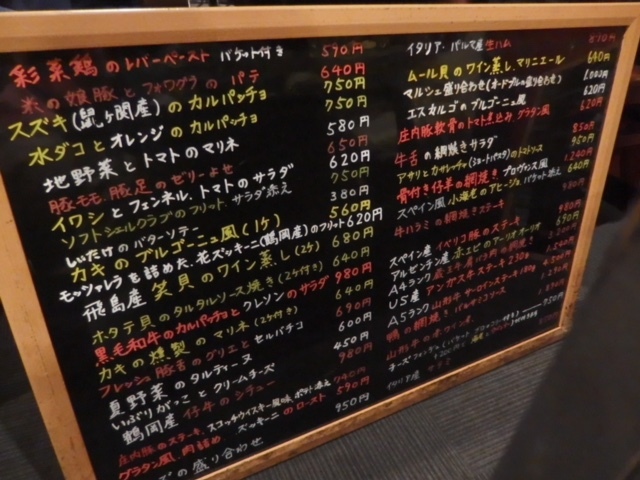 彩菜鶏のレバーペースト バケット付き 590円
米の娘豚とフォワグラのパテ 640円
スズキ(鼠ヶ関産)のカルパッチョ 750円
水ダコとオレンジのカルパッチョ 750円
地野菜とトマトのマリネ 580円
豚モモ、豚足のゼリーよせ 650円
イワシとフェンネル、トマトのサラダ 620円
ソフトシェルクラブのフリット、サラダ添え 750円
しいたけのバターソテー 380円
カキのブルゴーニュ風(1ケ) 560円
モッツァレラを詰めた、花ズッキーニ(鶴岡産)のフリット 620円
飛島産 笑貝のワイン蒸し(2ケ) 680円
ホタテ貝のタルタルソース焼き(2ケ付き) 640円
黒毛和牛のカルパッチョとクレソンのサラダ 980円
カキの燻製のマリネ(2ケ付き) 640円
フレッシュ豚舌のグリエとセルバチコ 690円
夏野菜のタルティーヌ 600円
いぶりがっことクリームチーズ 450円
鶴岡産 仔牛のシチュー 980円
庄内豚のステーキ、スコッチウイスキー風味、ポテト添え
グラタン風、肉詰めズッキーニのロースト 590円
の盛り合わせ 950円
イタリア・パルマ産生ハム
ムール貝のワイン蒸し、マリニエール 640円
マルシェ盛り合わせ(オードブルの盛り合わせ)
エスカルゴのブルゴーニュ風 620円
庄内豚軟骨のトマト煮込み、グラタン風 620円
牛舌の網焼きサラダ 850円
アサリとカサレーチェ(ショートパスタ)のトマトソース 950円
骨付き仔羊の網焼き、プロヴァンス風 1,240円
スペイン風 小海老のアヒージョ バケット添え 640円
牛ハラミの網焼きステーキ 980円
スペイン産 イベリコ豚のステーキ
アルゼンチン産 赤エビのアーリオオーリオ 690円
A4ランク 蔵王牛
US産 アンガス牛ステーキ 230g
A5ランク 山形牛 サーロインステーキ
鴨の網焼き バルサミコソース
山形牛の赤ワイン煮
チーズフォンデュ
イタリア産